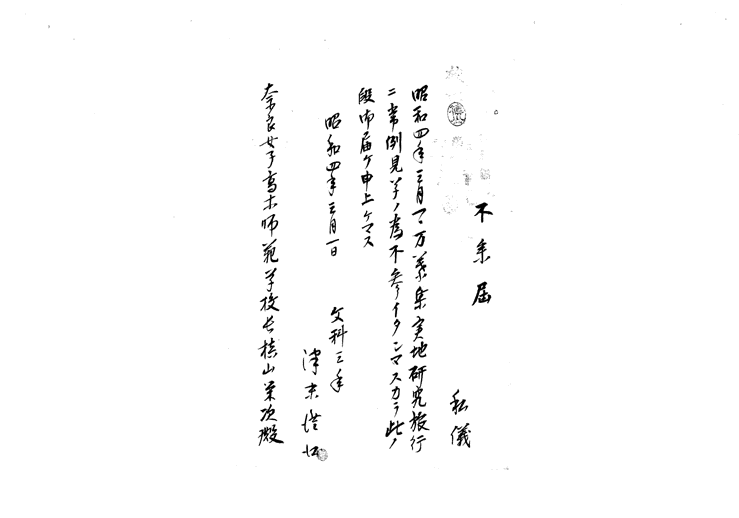 不参届
私儀
昭和四年三月 万葉集実地研究旅行
ニ常例見学ノ為不参イタシマスカラ此ノ
段御届ケ申上ケマス
昭和四年三月一日
文科三年
津末
奈良女子高等師範学校長槙山栄次殿